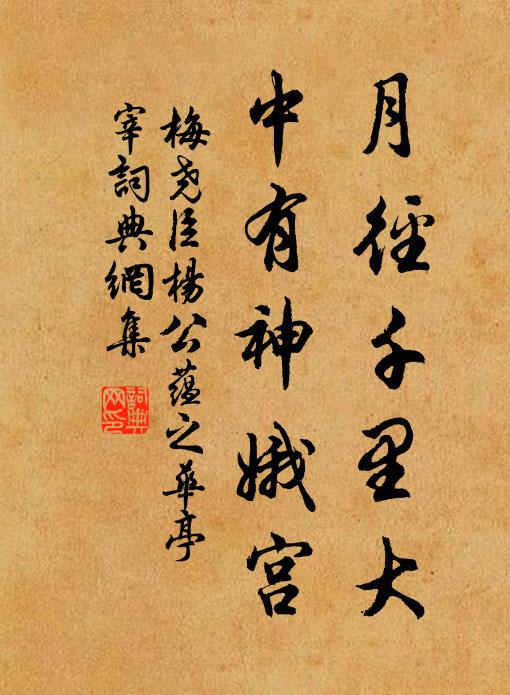 月徑千里大
中有神娥宮
梅堯臣楊公蘊之華亭
宰詞典網集
詞典
网印